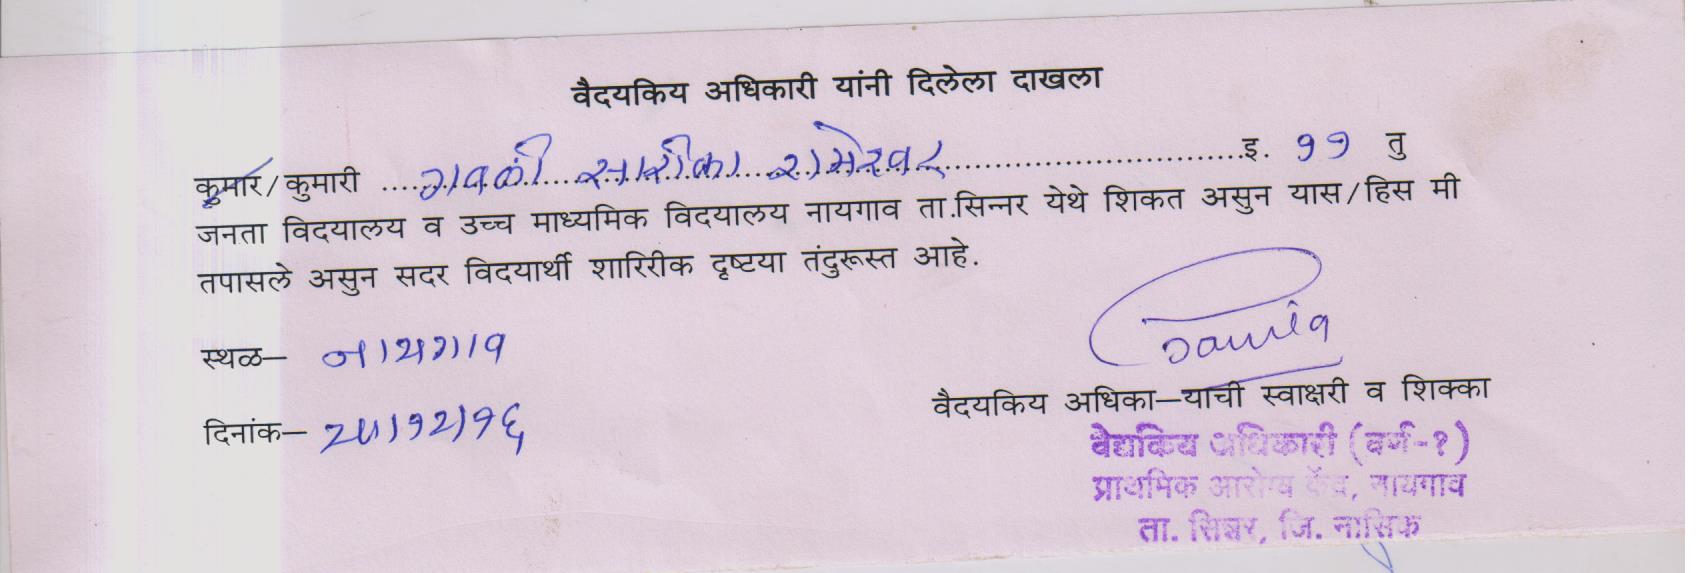 वैदयकिय अधिकारी यांनी दिलेला दाखला
कुमार/कुमारी ....गवळी सारीका रामेश्वर..............................इ. ११ तु
जनता विदयालय व उच्च माध्यमिक विदयालय नायगाव ता.सिन्नर येथे शिकत असुन यास/हिस मी
तपासले असुन सदर विदयार्थी शारिरीक दृष्टया तंदुरूस्त आहे.
स्थळ– नायगाव
वैदयकिय अधिका–याची स्वाक्षरी व शिक्का
दिनांक– २५।१२।१६
वैद्यकिय अधिकारी (वर्ग-१)
प्राथमिक आरोग्य केंद्र, नायगाव
ता. सिन्नर, जि. नासिक